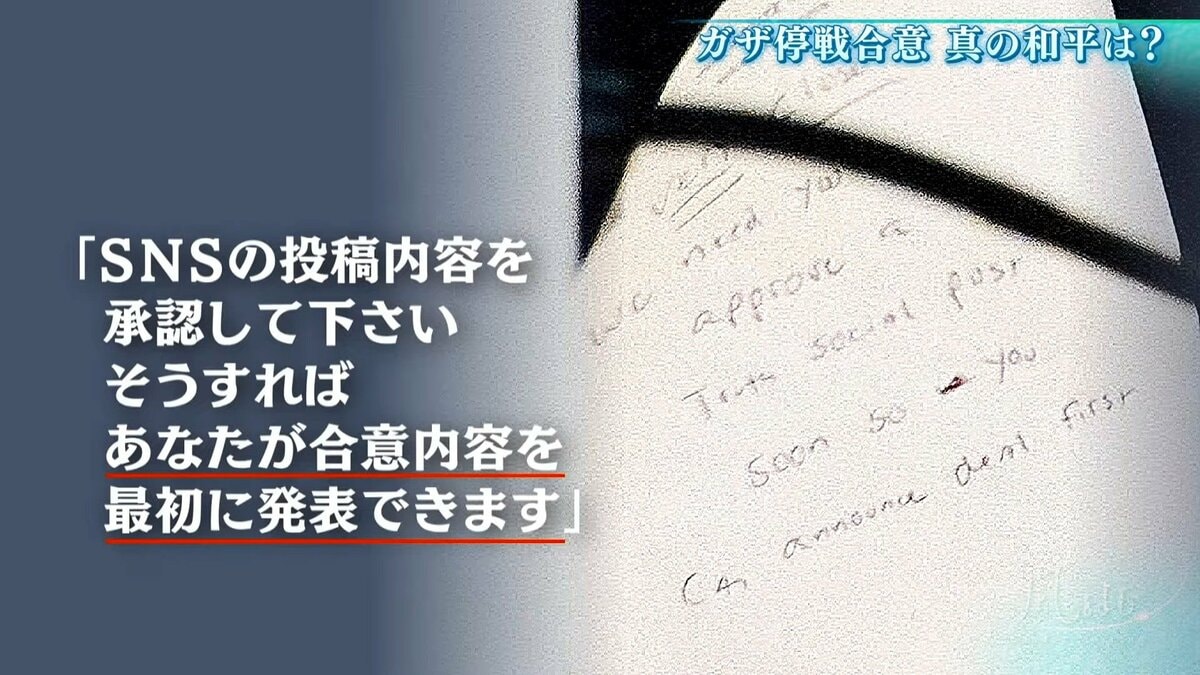 ガザ停戦合意 真の和平は?
「SNSの投稿内容を
承認して下さい
そうすれば
あなたが合意内容を
最初に発表できます」
We need you
approve a
Truth social post
soon so you
can announce deal first